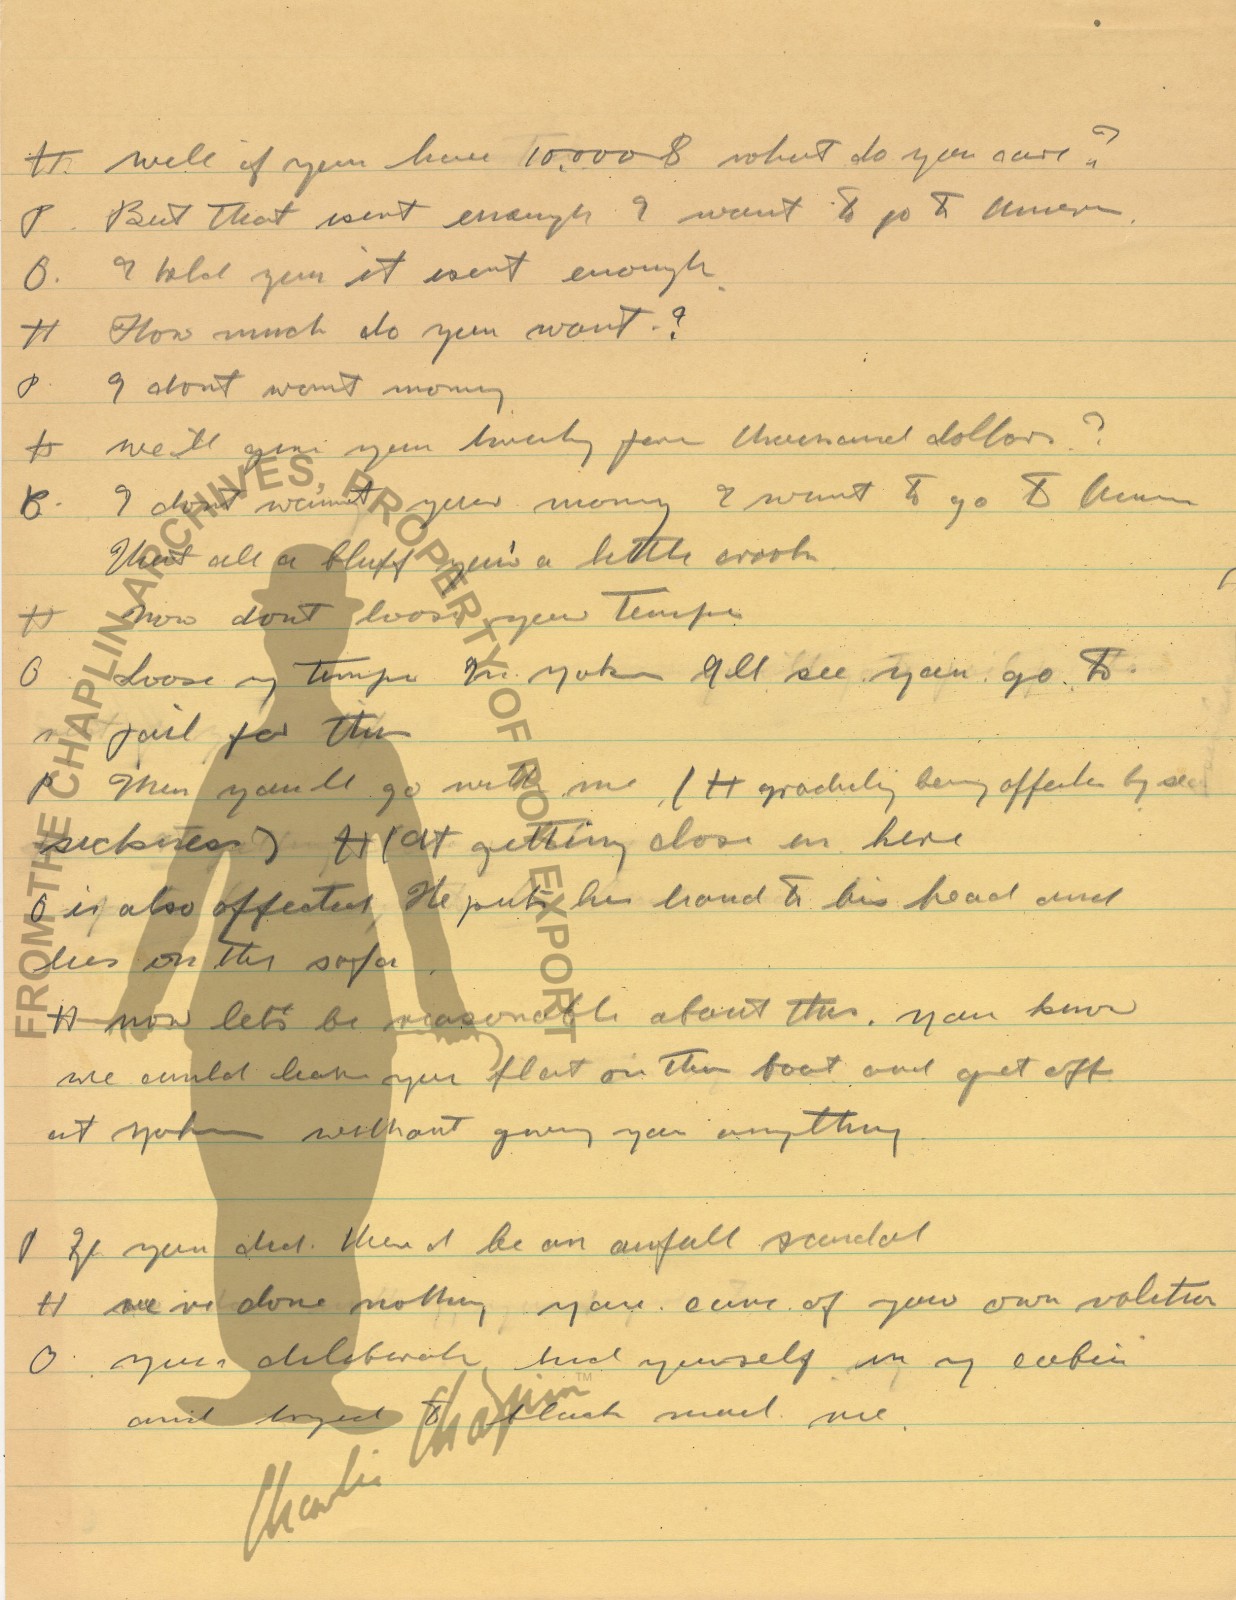 H. well if you have 10,000 $ what do you care?
P. But that isent enough I want to go to
O. I told you it isent enough.
H How much do you want.?
P. I dont want money
H we'll give you twenty five thousand dollars?
P. I dont want your money I want to go to
That all a bluff you'r a little crook
H Now dont loose your temper
O Loose my temper I'll see you go to
jail for this
P Then you'll go with me (H gradually being affected by sea
sickness) H (It getting close in here
O is also affected He puts his hand to his head and
lies on the sofa.
H now let's be reasonable about this. you know
we could leave you flat on this boat and get off
at without giving you anything
P If you did. there'd be an awfull scandal
H we've done nothing you came of your own volition
O. you deliberate hid yourself in my cabin
and tryed to black mail me.
FROM THE CHAPLIN ARCHIVES, PROPERTY OF ROY EXPORT
Charlie Chaplin™